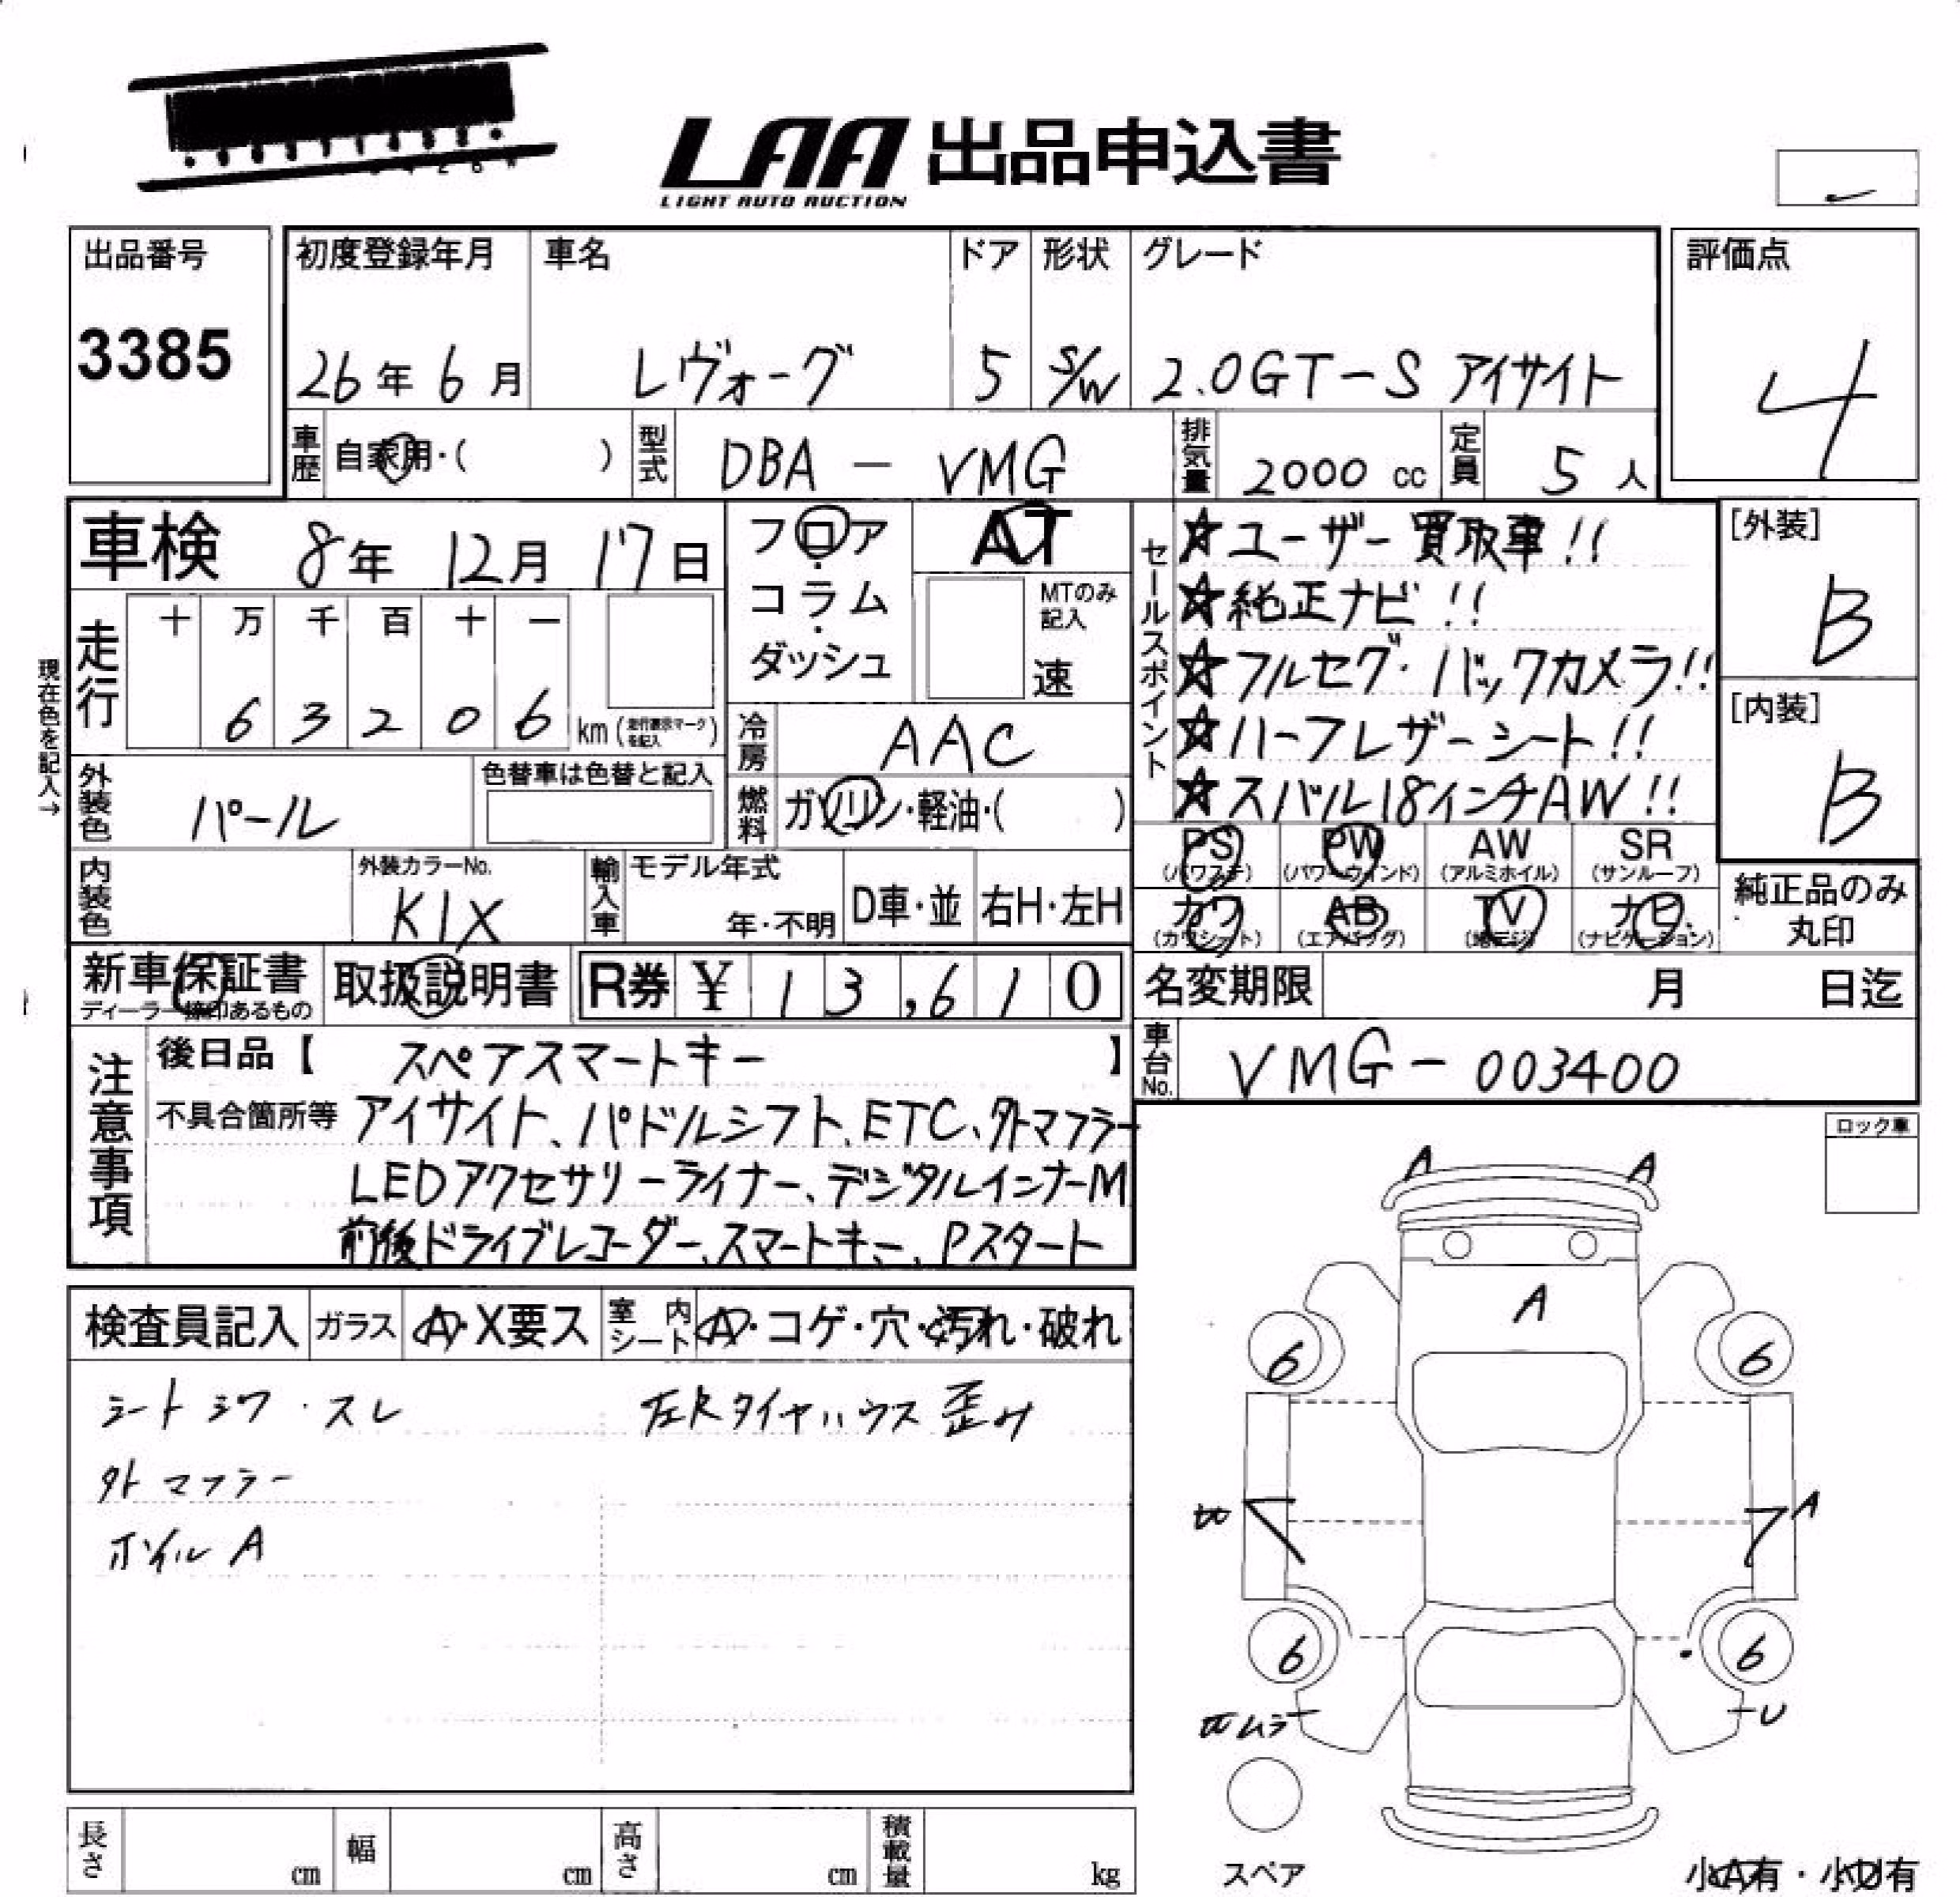 LAA 出品申込書
LIGHT AUTO AUCTION
出品番号
3385
初度登録年月 車名 ドア 形状 グレード
26年 6月 レヴォーグ 5 S/W 2.0GT-S アイサイト
評価点
4
車歴 自家用・( ) 型式 DBA - VMG 排気量 2000 cc 定員 5 人
車検 8年 12月 17日
フロア・コラム・ダッシュ
AT
MTのみ記入
速
現在色を記入→
走行 十 万 千 百 十 一
6 3 2 0 6 km (走行表示マークを記入)
冷房 AAC
外装色 パール
色替車は色替と記入
燃料 ガソリン・軽油・( )
セールスポイント
☆ユーザー買取車!!
☆純正ナビ!!
☆フルセグ・バックカメラ!!
☆ハーフレザーシート!!
☆スバル18インチAW!!
[外装]
B
[内装]
B
PS (パワステ) PW (パワーウインド) AW (アルミホイル) SR (サンルーフ)
カワ (カワシート) AB (エアバッグ) TV (地デジ) ナビ (ナビゲーション)
純正品のみ
丸印
内装色
外装カラーNo.
K1X
輸入車 モデル年式
年・不明 D車・並 右H・左H
新車保証書
ディーラー捺印あるもの
取扱説明書
R券 ¥ 13,610
名変期限 月 日迄
車台No. VMG-003400
注意事項
後日品【 スペアスマートキー 】
不具合箇所等 アイサイト、パドルシフト、ETC、外マフラー
LEDアクセサリーライナー、デジタルインナーM
前後ドライブレコーダー、スマートキー、Pスタート
ロック車
検査員記入 ガラス A・X要ス 室内シート A・コゲ・穴・汚れ・破れ
シートシワ・スレ 左Rタイヤハウス歪み
外マフラー
ホイルA
A A
A
6 6
A
6 6
ムラ U
スペア
小A有・小U有
長さ cm 幅 cm 高さ cm 積載量 kg